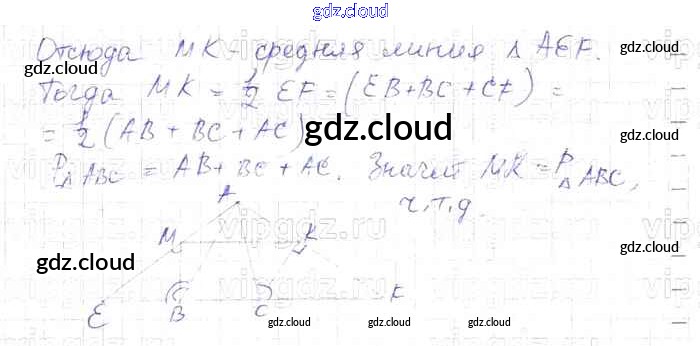 gdz.cloud
Отсюда MK - средняя линия Δ AEF.
gdz.cloud
gdz.cloud
Тогда MK = 1/2 EF = (EB + BC + CF) =
= 1/2 (AB + BC + AC)
gdz.cloud
P Δ ABC = AB + BC + AC. Значит MK = P Δ ABC,
ч.т.д.
A
vipgdz.ru
M K
gdz.cloud
gdz.cloud
E B C F
gdz.cloud gdz.cloud gdz.cloud